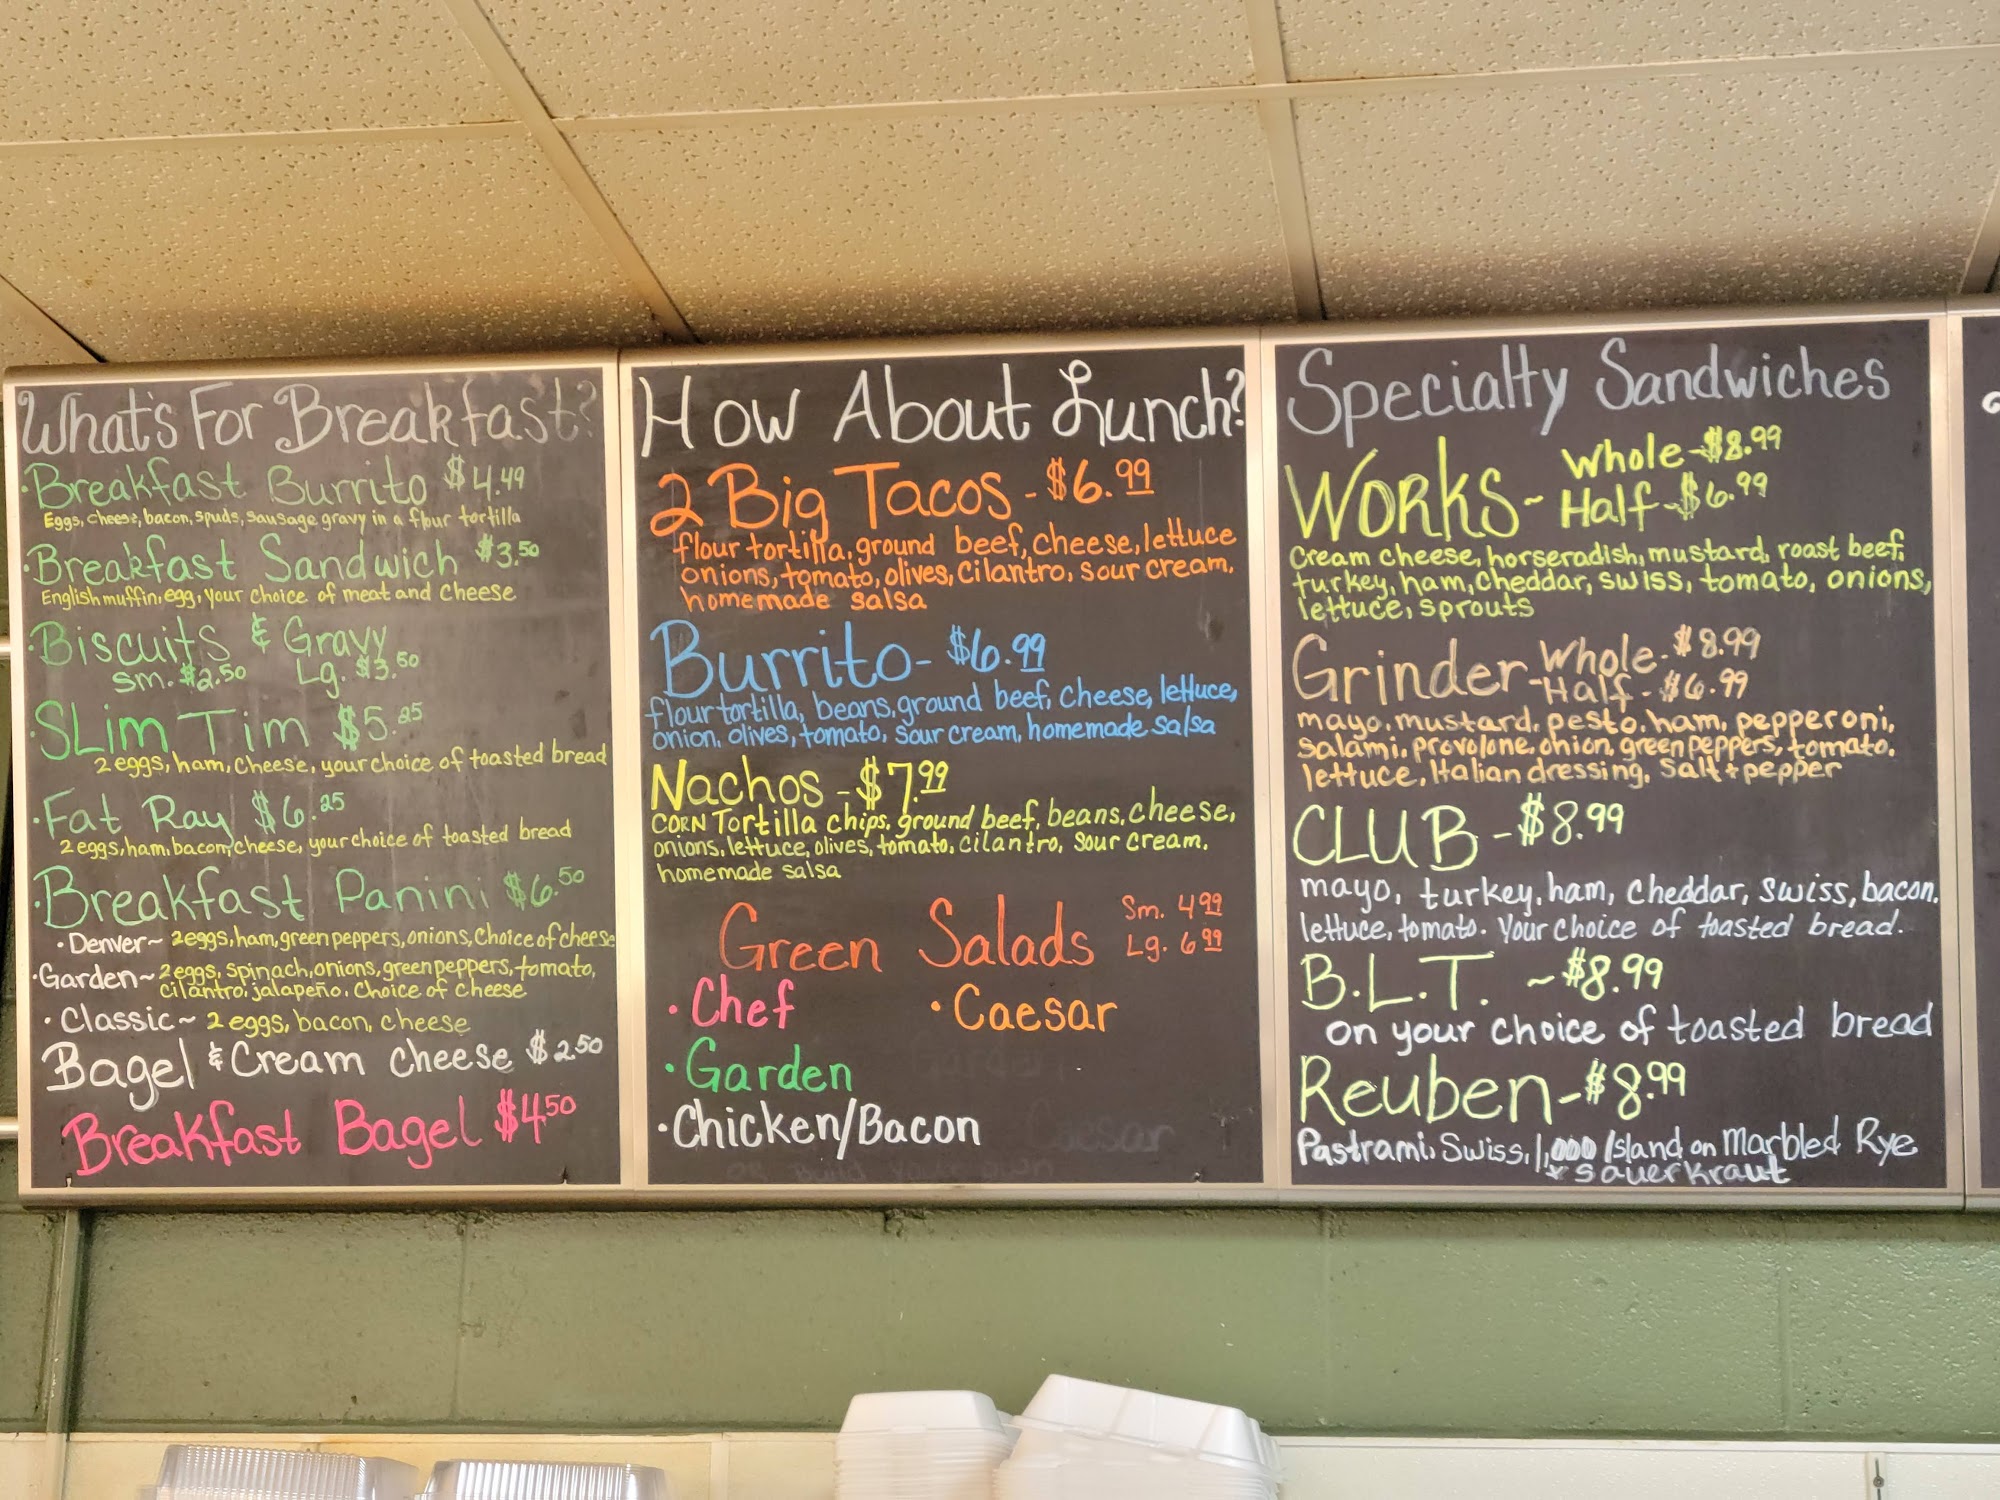 What's For Breakfast?
·Breakfast Burrito $4.49
Eggs, cheese, bacon, spuds, sausage gravy in a flour tortilla
·Breakfast Sandwich $3.50
English muffin, egg, your choice of meat and cheese
·Biscuits & Gravy
Sm. $2.50 Lg. $3.50
·SLim Tim $5.25
2 eggs, ham, cheese, your choice of toasted bread
·Fat Ray $6.25
2 eggs, ham, bacon, cheese, your choice of toasted bread
·Breakfast Panini $6.50
·Denver~ 2 eggs, ham, green peppers, onions, Choice of cheese
·Garden~ 2 eggs, spinach, onions, green peppers, tomato,
cilantro, jalapeño. Choice of cheese
·Classic~ 2 eggs, bacon, cheese
Bagel & Cream cheese $2.50
Breakfast Bagel $4.50
How About Lunch?
2 Big Tacos - $6.99
flour tortilla, ground beef, cheese, lettuce
onions, tomato, olives, cilantro, sour cream,
homemade salsa
Burrito - $6.99
flour tortilla, beans, ground beef, cheese, lettuce,
onion, olives, tomato, sour cream, homemade salsa
Nachos - $7.99
CORN Tortilla chips, ground beef, beans, cheese,
onions, lettuce, olives, tomato, cilantro, sour cream.
homemade salsa
Green Salads Sm. 4.99
Lg. 6.99
·Chef ·Caesar
·Garden
·Chicken/Bacon
Specialty Sandwiches
WORKS~ Whole-$8.99
Half-$6.99
Cream cheese, horseradish, mustard, roast beef,
turkey, ham, cheddar, swiss, tomato, onions,
lettuce, sprouts
Grinder-Whole-$8.99
Half-$6.99
mayo, mustard, pesto, ham, pepperoni,
salami, provolone, onion, green peppers, tomato,
lettuce, Italian dressing, Salt + pepper
CLUB-$8.99
mayo, turkey, ham, cheddar, swiss, bacon,
lettuce, tomato. Your choice of toasted bread.
B.L.T. ~$8.99
on your choice of toasted bread
Reuben-$8.99
Pastrami, Swiss, 1,000 Island on Marbled Rye
& Sauerkraut